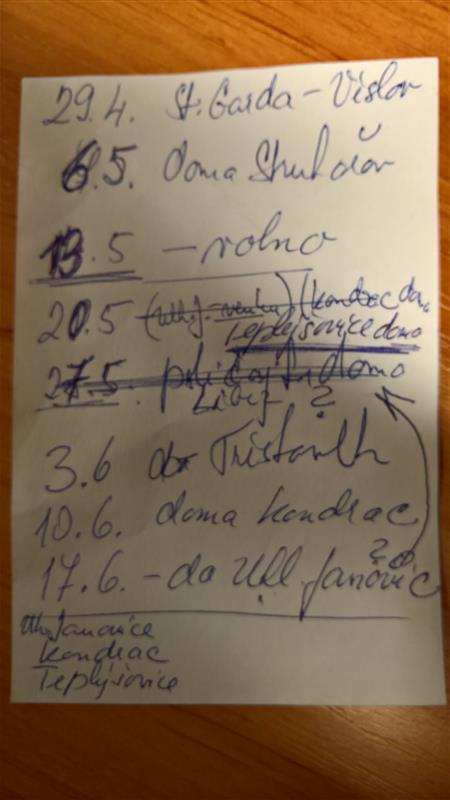 29.4. St. Garda - Vislov
6.5. doma Struhařov
13.5 - volno
20.5 (Uh.J. - venku) (Kondrac doma
Teplýšovice doma
27.5. doma
?
3.6 do
10.6. doma Kondrac
17.6. - do Uhl. Janovic ?
Uh. Janovice
Kondrac
Teplýšovice